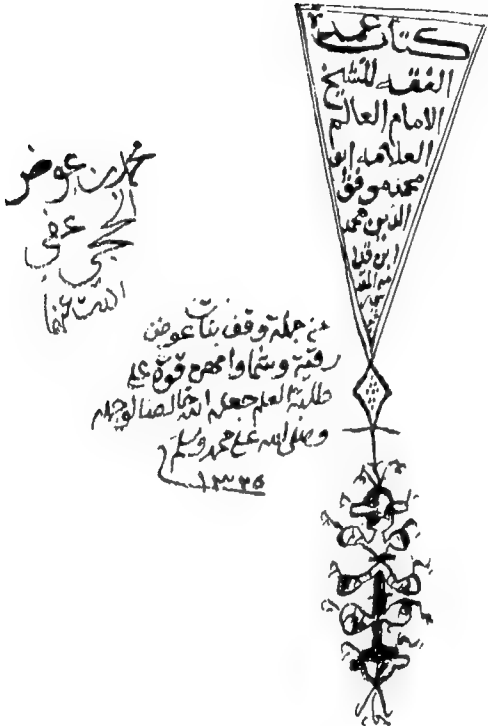 كتاب عمدة
الفقه للشيخ
الامام العالم
العلامه ابو
محمد موفق
الدين محمد
ابن قدا
مه المقد
محمد بن عوض
الحجي عفى
الله عنهما
من جملة وقف بنات عوض
رقية وشما وا قوة على
طلبة العلم جعله الله خالصا لوجهه
وصلى الله على محمد وسلم
١٣٢٥